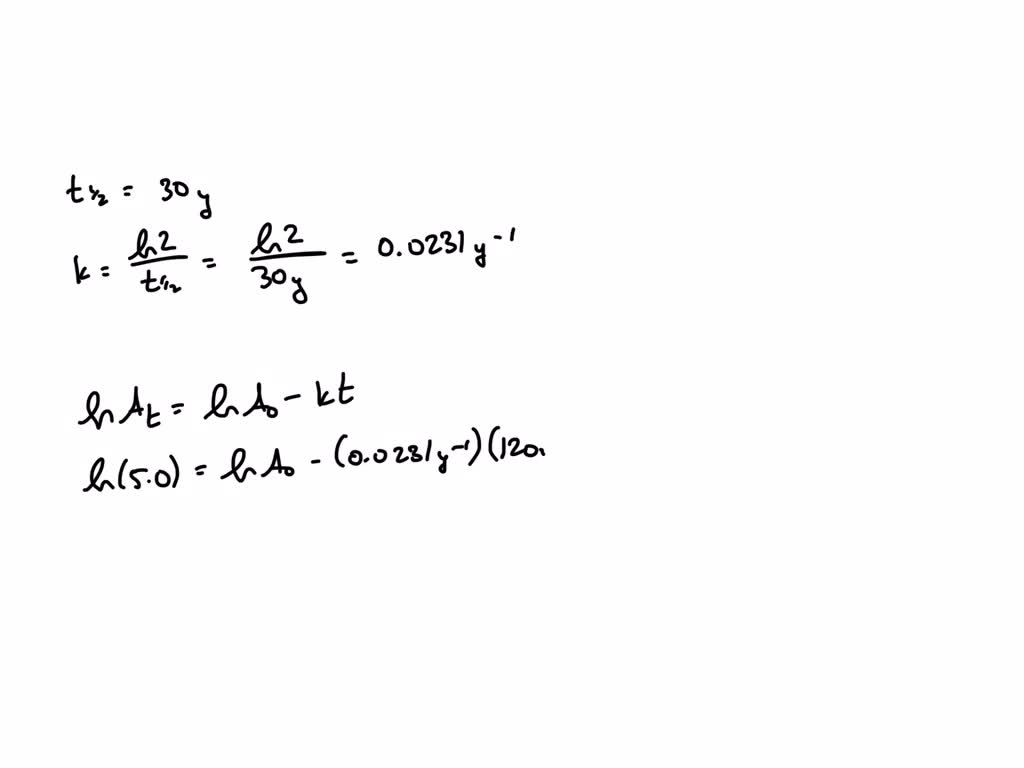 t½ = 30 y
k = ln2 / t½ = ln2 / 30y = 0.0231 y⁻¹
ln Aₜ = ln A₀ - kt
ln(5.0) = ln A₀ - (0.0231 y⁻¹)(120.